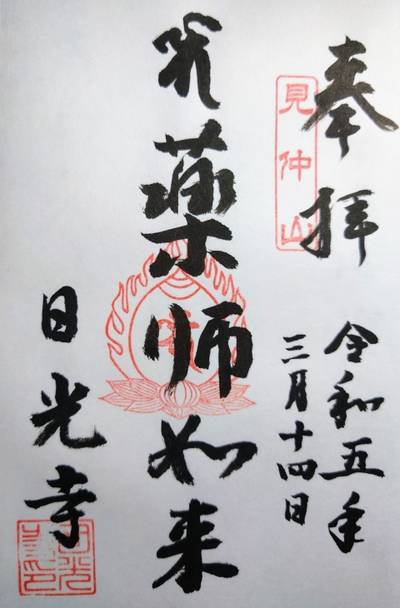 奉拝
見仲山
令和五年
三月十四日
薬師如来
日光寺